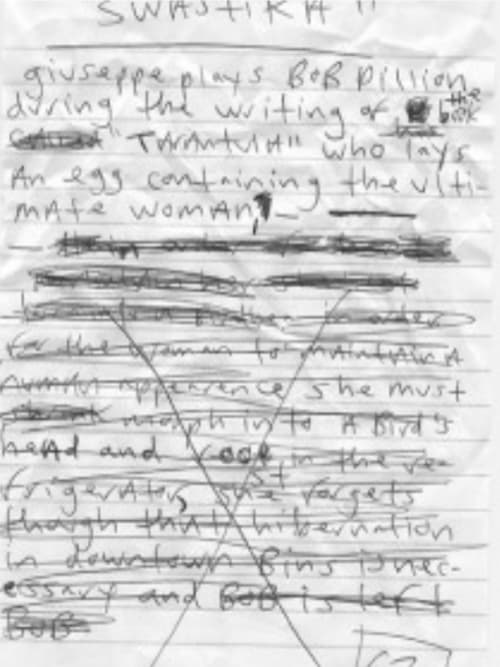 SWASTIKA"
giuseppe plays BOB Dillion
during the writing of the book
called "TARANTULA" who lays
AN egg containing the ulti-
mate WOMAN
in order
for the woman to MAINTAIN A
HUMAN appearence she must
morph in to A Bird's
head and roost in the re-
frigerAtor, she forgets
though that hibernation
in downtown Bins is nec-
essary and BOB is left
BOB